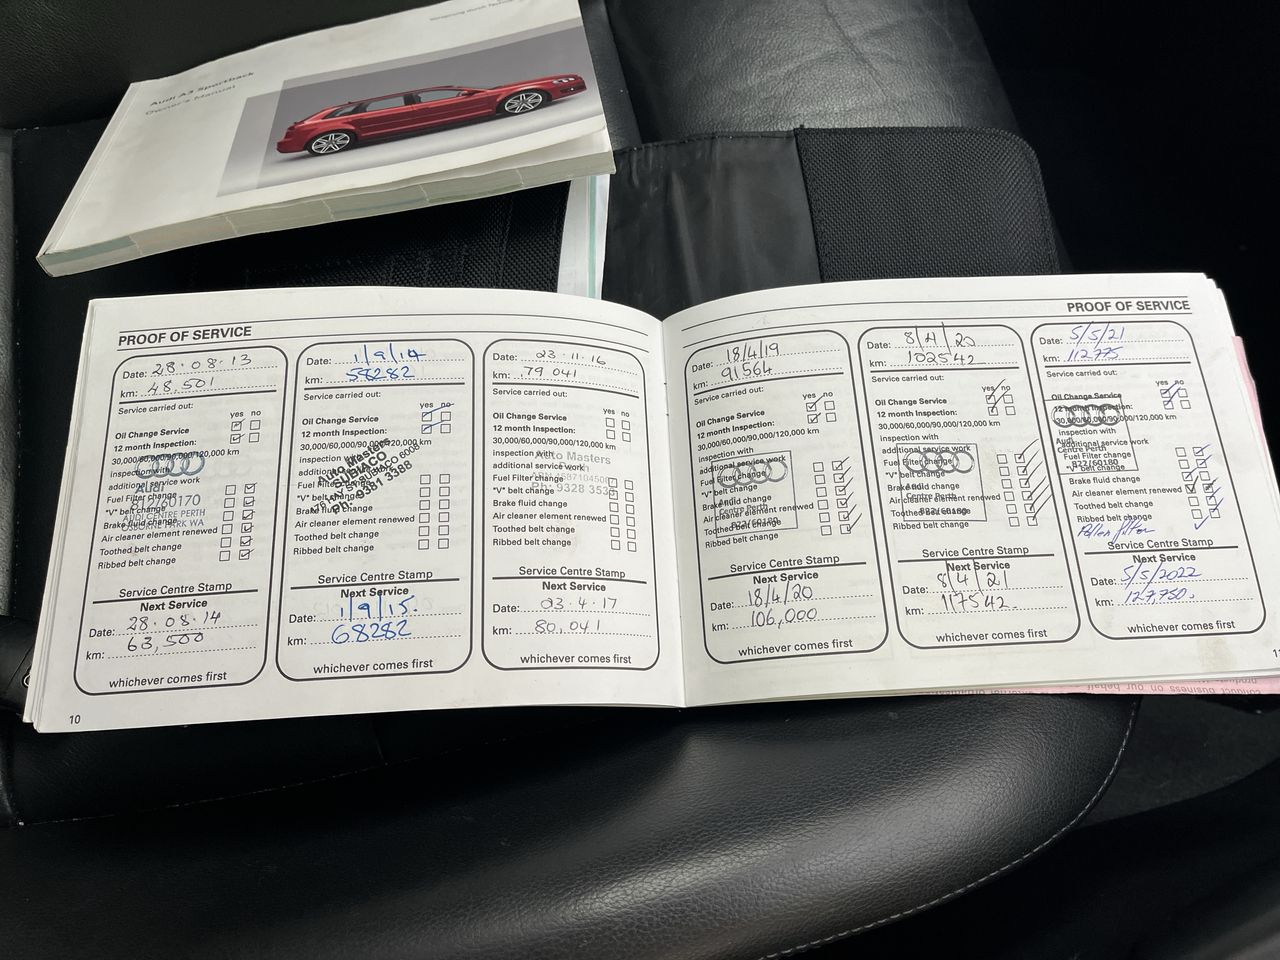 Audi A3 Sportback
Owner's Manual
PROOF OF SERVICE
Date: 28.08.13
km: 48,501
Service carried out:
yes no
Oil Change Service
12 month Inspection:
30,000/60,000/90,000/120,000 km
inspection with
additional service work
Fuel Filter change
"V" belt change
Brake fluid change
Air cleaner element renewed
Toothed belt change
Ribbed belt change
Audi
AUDI CENTRE PERTH
OSBORNE PARK WA
Service Centre Stamp
Next Service
Date: 28.08.14
km: 63,500
whichever comes first
Date: 1/9/14
km: 58282
Service carried out:
yes no
Oil Change Service
12 month Inspection:
30,000/60,000/90,000/120,000 km
inspection with
additional service work
Fuel Filter change
"V" belt change
Brake fluid change
Air cleaner element renewed
Toothed belt change
Ribbed belt change
Auto Masters
SUBIACO
6008
Ph: 9381 3388
Service Centre Stamp
Next Service
Date: 1/9/15.
km: 68282
whichever comes first
Date: 23.11.16
km: 79 041
Service carried out:
yes no
Oil Change Service
12 month Inspection:
30,000/60,000/90,000/120,000 km
inspection with
additional service work
Fuel Filter change
"V" belt change
Brake fluid change
Air cleaner element renewed
Toothed belt change
Ribbed belt change
Auto Masters
Ph: 9328 3533
Service Centre Stamp
Next Service
Date: 03.4.17
km: 80,041
whichever comes first
10
PROOF OF SERVICE
Date: 18/4/19
km: 91564
Service carried out:
yes no
Oil Change Service
12 month Inspection:
30,000/60,000/90,000/120,000 km
inspection with
additional service work
Fuel Filter change
"V" belt change
Brake fluid change
Air cleaner element renewed
Toothed belt change
Ribbed belt change
Audi
Centre Perth
822/60180
Service Centre Stamp
Next Service
Date: 18/4/20
km: 106,000
whichever comes first
Date: 8/4/20
km: 102542
Service carried out:
yes no
Oil Change Service
12 month Inspection:
30,000/60,000/90,000/120,000 km
inspection with
additional service work
Fuel Filter change
"V" belt change
Brake fluid change
Air cleaner element renewed
Toothed belt change
Ribbed belt change
Audi
Centre Perth
822/60180
Service Centre Stamp
Next Service
Date: 8/4/21
km: 117542.
whichever comes first
Date: 5/5/21
km: 112775
Service carried out:
yes no
Oil Change Service
12 month Inspection:
30,000/60,000/90,000/120,000 km
inspection with
additional service work
Fuel Filter change
"V" belt change
Brake fluid change
Air cleaner element renewed
Toothed belt change
Ribbed belt change
Pollen filter
Audi
Centre Perth
822/60180
Service Centre Stamp
Next Service
Date: 5/5/2022
km: 127,750.
whichever comes first